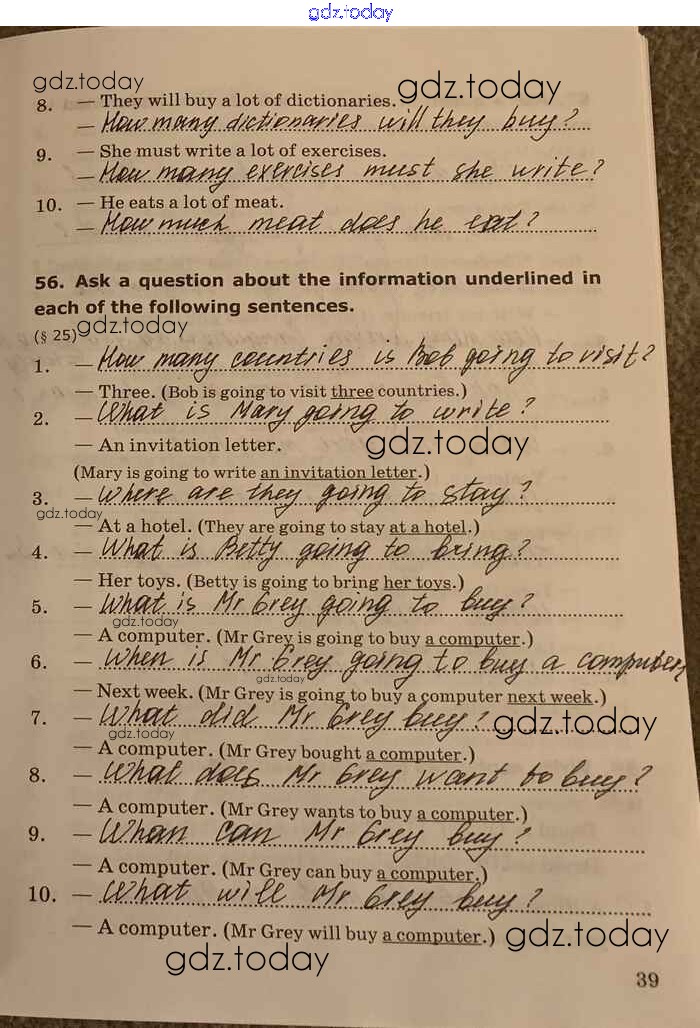 gdz.today
gdz.today
gdz.today
8. — They will buy a lot of dictionaries.
— How many dictionaries will they buy?
9. — She must write a lot of exercises.
— How many exercises must she write?
10. — He eats a lot of meat.
— How much meat does he eat?
56. Ask a question about the information underlined in
each of the following sentences.
(§ 25) gdz.today
1. — How many countries is Bob going to visit?
— Three. (Bob is going to visit three countries.)
2. — What is Mary going to write?
— An invitation letter. gdz.today
(Mary is going to write an invitation letter.)
3. — Where are they going to stay?
gdz.today
— At a hotel. (They are going to stay at a hotel.)
4. — What is Betty going to bring?
— Her toys. (Betty is going to bring her toys.)
5. — What is Mr Grey going to buy?
gdz.today
— A computer. (Mr Grey is going to buy a computer.)
6. — When is Mr Grey going to buy a computer?
gdz.today
— Next week. (Mr Grey is going to buy a computer next week.)
7. — What did Mr Grey buy? gdz.today
gdz.today
— A computer. (Mr Grey bought a computer.)
8. — What does Mr Grey want to buy?
— A computer. (Mr Grey wants to buy a computer.)
9. — Whan can Mr Grey buy?
— A computer. (Mr Grey can buy a computer.)
10. — What will Mr Grey buy?
— A computer. (Mr Grey will buy a computer.) gdz.today
gdz.today
39